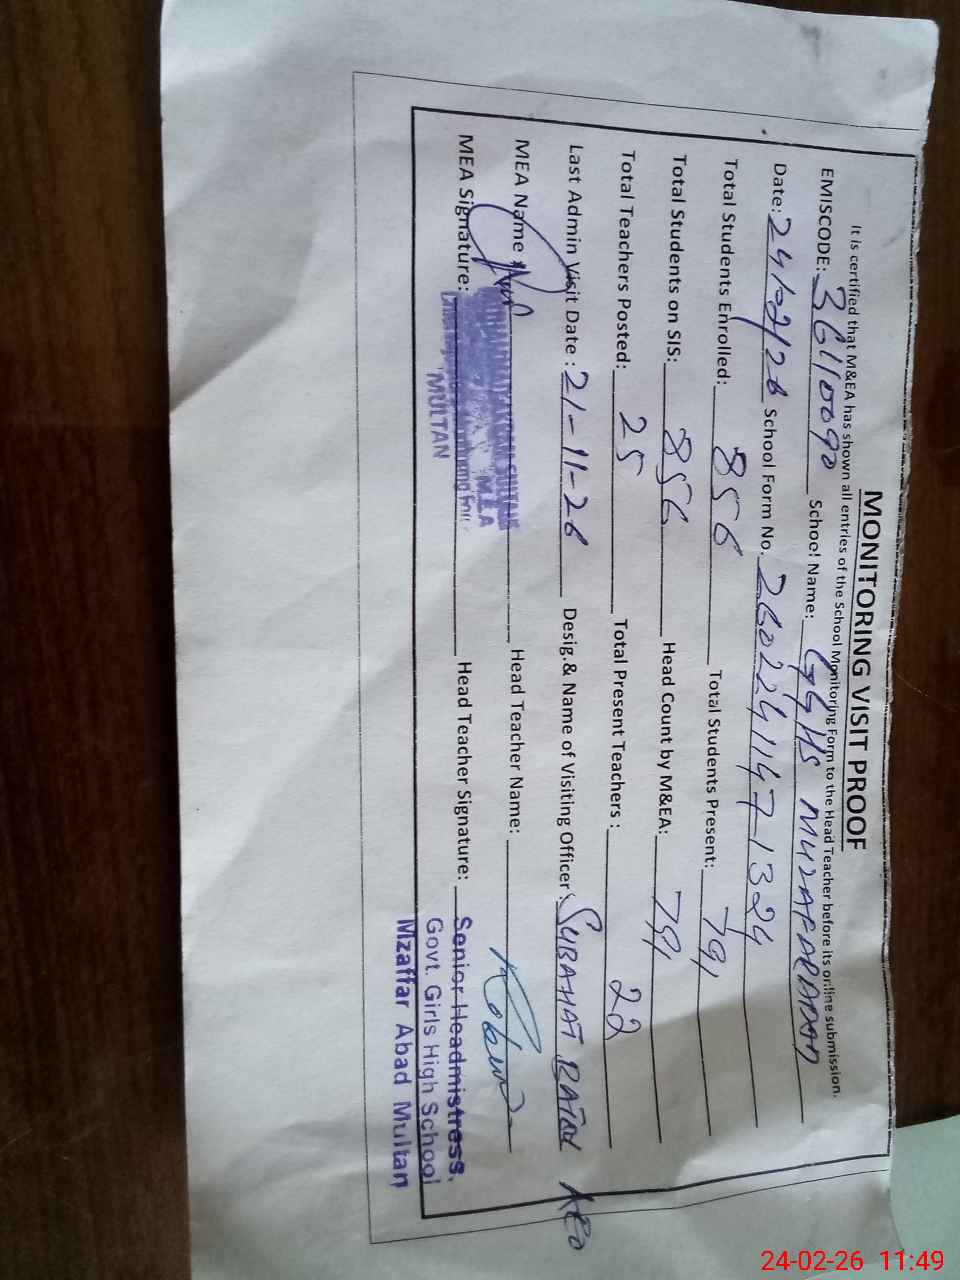 MONITORING VISIT PROOF
It is certified that M&EA has shown all entries of the School Monitoring Form to the Head Teacher before its online submission.
EMISCODE: 36110090 School Name: GGHS MUZAFARABAD
Date: 24/02/26 School Form No. 2602241147-1324
Total Students Enrolled: 856 Total Students Present: 791
Total Students on SIS: 856 Head Count by M&EA: 791
Total Teachers Posted: 25 Total Present Teachers : 22
Last Admin Visit Date : 21-11-26 Desig.& Name of Visiting Officer: SUBAHAT AEO
MEA Name : Head Teacher Name:
MEA Signature: Head Teacher Signature:
M.E.A
MULTAN
Senior Headmistress.
Govt. Girls High School
Mzaffar Abad Multan
24-02-26 11:49